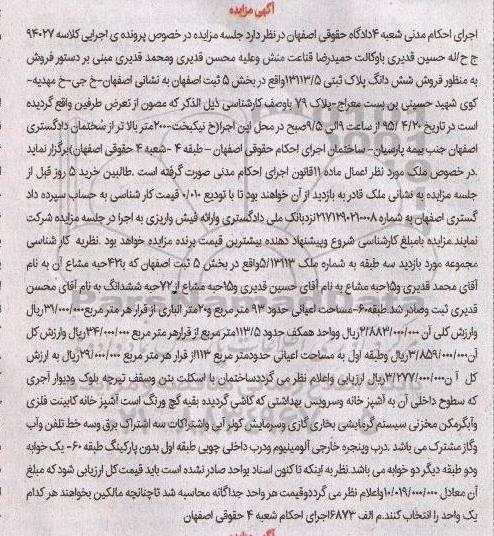 آگهی مزایده
اجرای احکام مدنی شعبه ۴ دادگاه حقوقی اصفهان در نظر دارد جلسه مزایده در خصوص پرونده ی اجرایی کلاسه ۹۴۰۲۷
ج ح/له حسین قدیری باوکالت حمیدرضا قناعت منش وعلیه محسن قدیری ومحمد قدیری مبنی بر دستور فروش
به منظور فروش شش دانگ پلاک ثبتی ۱۳۱۱۳/۵ واقع در بخش ۵ ثبت اصفهان به نشانی اصفهان-خ جی-خ مهدیه-
کوی شهید حسینی بن بست معراج-پلاک ۷۹ باوصف کارشناسی ذیل الذکر که مصون از تعرض طرفین واقع گردیده
است در تاریخ ۹۵/۴/۲۰ از ساعت ۹الی ۹/۵صبح در محل این اجرا(خ نیکبخت-۲۰۰متر بالا تر از سُختمان دادگستری
اصفهان جنب بیمه پارسیان- ساختمان اجرای احکام حقوقی اصفهان – طبقه ۴ -شعبه ۴ حقوقی اصفهان)برگزار نماید
.در خصوص ملک مورد نظر اعمال ماده ۱۱قانون اجرای احکام مدنی صورت گرفته است .طالبین خرید ۵ روز قبل از
جلسه مزایده به نشانی ملک قادر به بازدید از آن خواهند بود تا با تودیع ۰/۰۱۰ قیمت کار شناسی به حساب سپرده داد
گستری اصفهان به شماره ۲۱۷۱۲۹۰۲۱۰۰۰۸نزدبانک ملی دادگستری وارائه فیش واریزی به اجرا در جلسه مزایده شرکت
نمایند.مزایده بامبلغ کارشناسی شروع وپیشنهاد دهنده بیشترین قیمت برنده مزایده خواهد بود .نظریه کار شناسی
مجموعه مورد بازدید سه طبقه به شماره ملک ۵/۱۳۱۱۳واقع در بخش ۵ ثبت اصفهان که با۴۲حبه مشاع آن به نام
آقای محمد قدیری و۱۵حبه مشاع به نام آقای حسین قدیری و۱۵حبه مشاع از ۷۲حبه ششدانگ به نام آقای محسن
قدیری ثبت وصادر شد.طبقه۶۰-مساحت اعیانی حدود ۹۳ متر مربع و۲۰متر انباری از قرار هر متر مربع ۳۱/۰۰۰/۰۰۰ریال
وارزش کلی آن ۲/۸۸۳/۰۰۰/۰۰۰ریال وواحد همکف حدود ۱۱۳/۵متر مربع از قرارهر متر مربع ۳۴/۰۰۰/۰۰۰ریال وارزش کل
آن۳/۸۵۹/۰۰۰/۰۰۰ریال وطبقه اول به مساحت اعیانی حدودمتر مربع ۱۱۳از قرار هر متر مربع ۲۹/۰۰۰/۰۰۰ریال به ارزش
کل آن۳/۲۷۷/۰۰۰/۰۰۰ریال ارزیابی واعلام نظر می گرددساختمان با اسکلت بتن وسقف تیرچه بلوک ودیوار آجری
که سطوح داخلی آن به آشپز خانه وسرویس بهداشتی که کاشی گردیده بقیه گچ ورنگ است آشپز خانه کابینت فلزی
وآبگرمکن مخزنی سیستم گرمایشی بخاری گازی وسرمایش کولر آبی واشتراکات سه اشتراک برق وسه خط تلفن وآب
وگاز مشترک می باشد .درب وپنجره خارجی آلومینیوم ودرب داخلی چوبی طبقه اول بدون پارکینگ طبقه ۶۰- یک خوابه
ودو طبقه دیگر دو خوابه می باشد .نظر به اینکه تا کنون اسناد بواحد صادر نشده است باید قیمت کل ارزیابی شود که مبلغ
آن معادل ۱۰/۰۱۹/۰۰۰/۰۰۰واعلام نظر می گرددوقیمت هر واحد جداگانه محاسبه شد تاچنانچه مالکین بخواهند هر کدام
یک واحد را انتخاب کنند.م الف ۶۸۷۳اجرای احکام شعبه ۴ حقوقی اصفهان